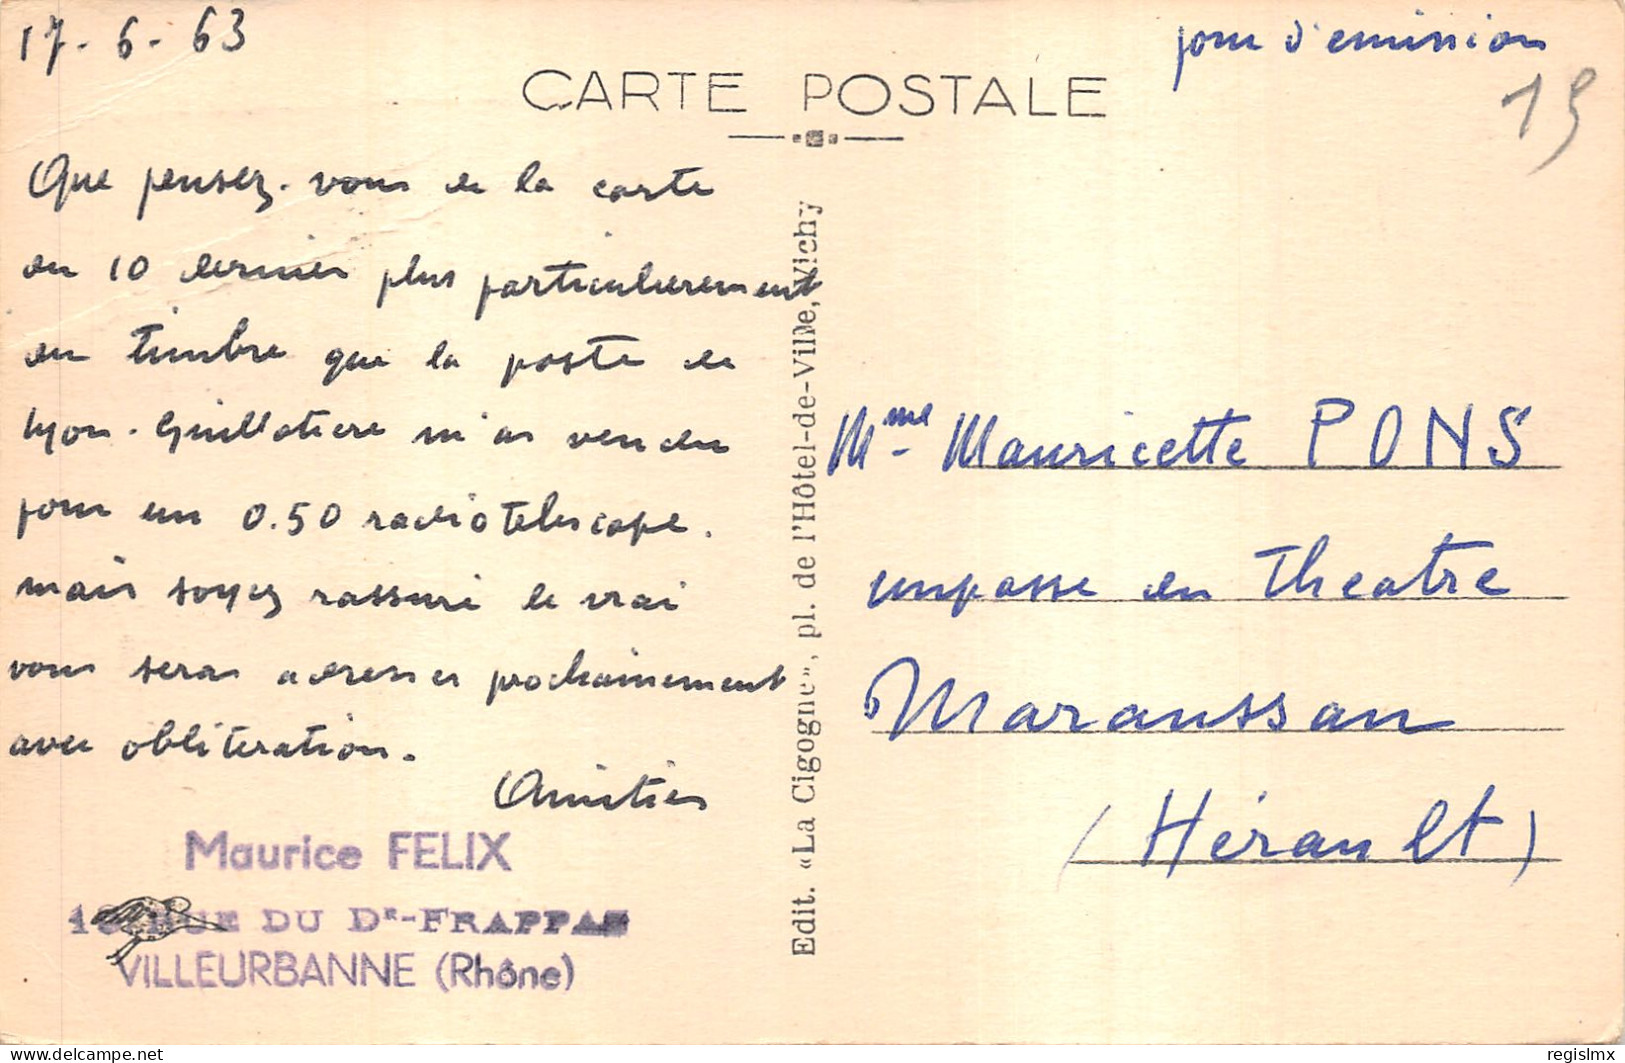 17-6-63
jour d'emission
CARTE POSTALE
15
Que pensez-vous de la carte
du 10 dernier plus particulierement
du timbre que la poste de
Lyon-Guillotiere m'as vendu
pour un 0.50 radiotelescope.
mais soyez rassuré le vrai
vous seras adresser prochainement
avec obliteration.
Amitiés
Maurice FELIX
RUE DU Dr-FRAPPAS
VILLEURBANNE (Rhône)
Edit. «La Cigogne», pl. de l'Hôtel-de-Ville, Vichy
Mme Mauricette PONS
impasse du Theatre
Maraussan
(Hérault)
delcampe.net
regislmx